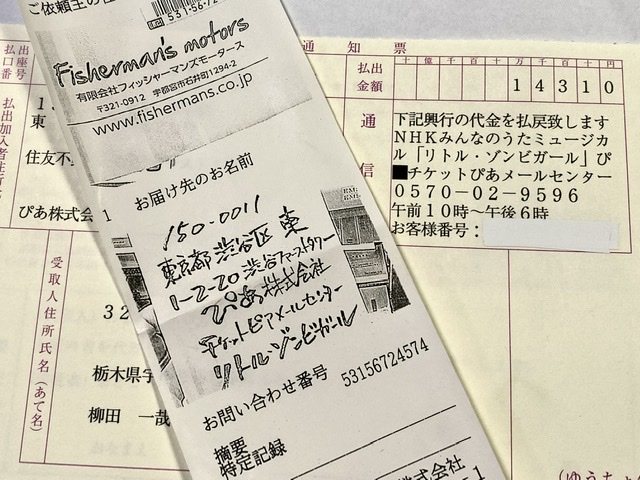 ご依頼主の
531-56-72
Fisherman's motors
有限会社フィッシャーマンズモータース
〒321-0912 宇都宮市石井町1294-2
www.fishermans.co.jp
お届け先のお名前
150-0011
東京都渋谷区東
1-2-20 渋谷ファーストタワー
ぴあ株式会社
チケットピアメールセンター
リトル・ゾンビガール
お問い合わせ番号 53156724574
摘要
特定記録
株式会社
通知票
払出金額
十億千百十万千百十円
14310
通信
下記興行の代金を払戻致します
NHKみんなのうたミュージカ
ル「リトル・ゾンビガール」ぴ
■チケットぴあメールセンター
0570-02-9596
午前10時~午後6時
お客様番号:
払出口座番号
払出加入者住所
東
住友不
ぴあ株式会
受取人住所氏名(あて名)
32
栃木県宇
柳田 一哉
(ゆうちょ